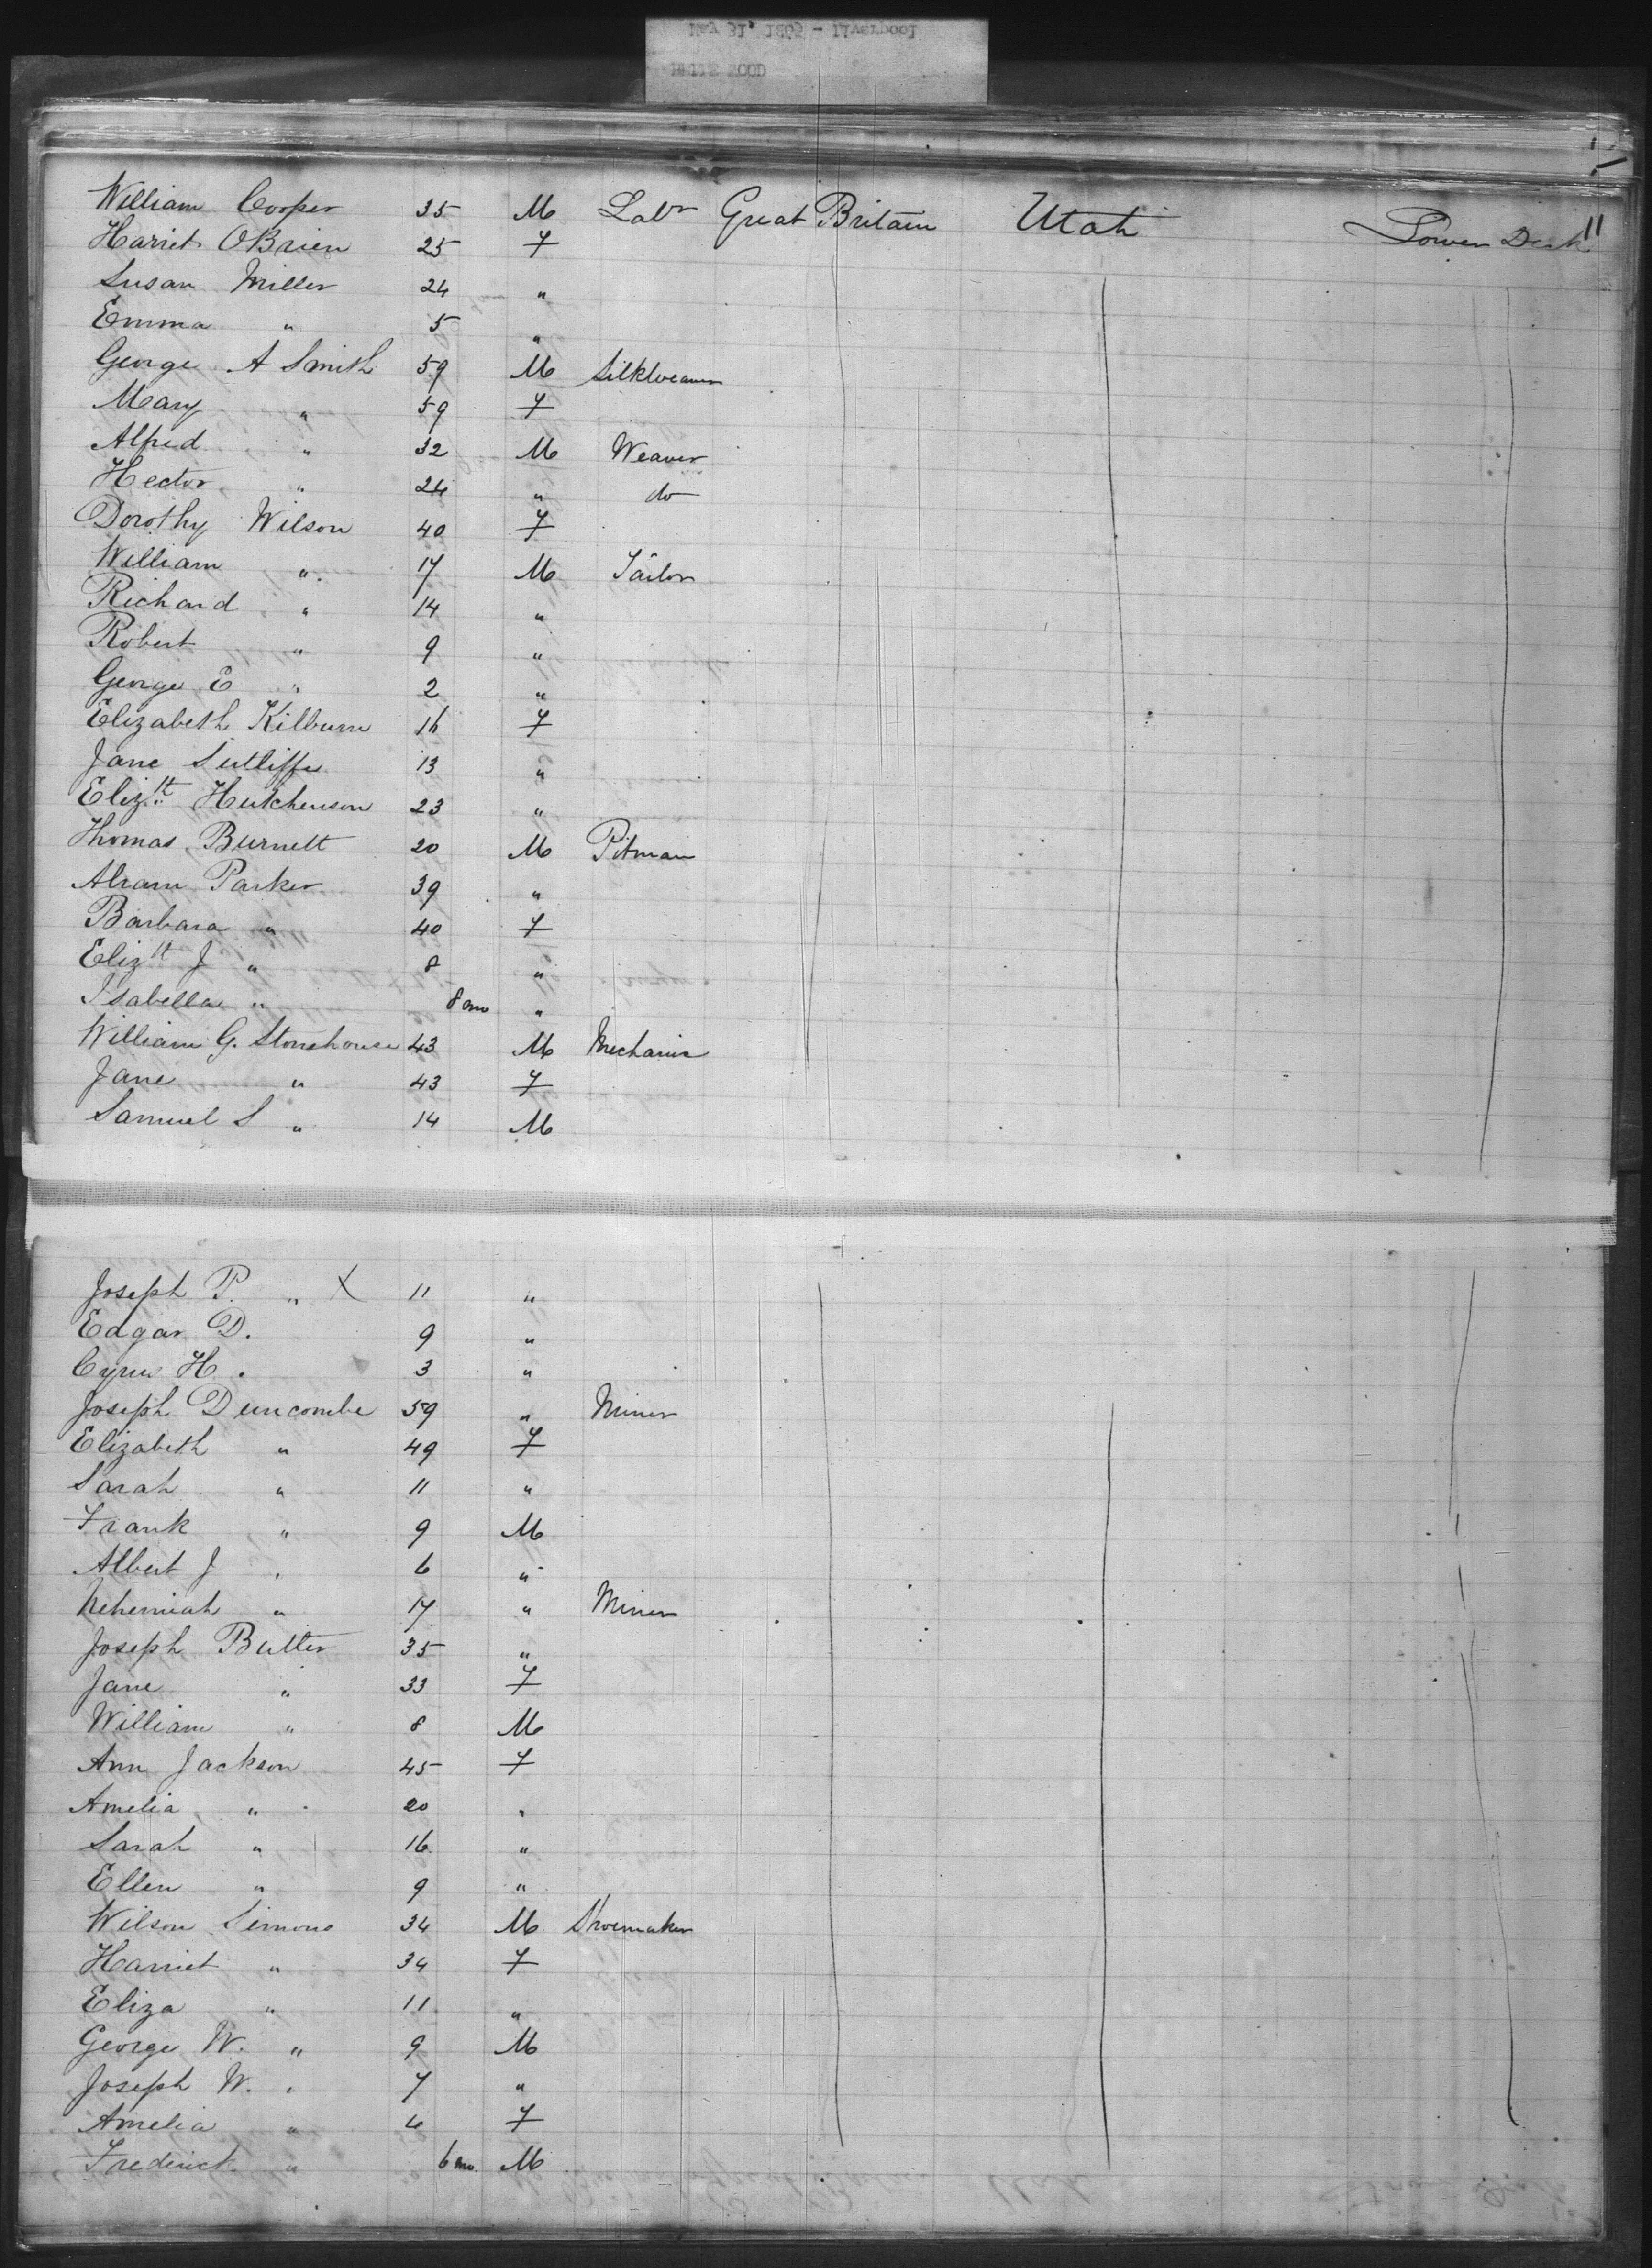 May 31, 1865 - Liverpool
William Cooper 35 M Labr Great Britain Utah Lower Deck 11
Harriet OBrien 25 F
Susan Miller 24 "
Emma " 5 "
George A Smith 59 M Silkweaver
Mary " 59 F
Alfred " 32 M Weaver
Hector " 24 " do
Dorothy Wilson 40 F
William " 17 M Tailor
Richard " 14 "
Robert " 9 "
George E " 2 "
Elizabeth Kilburn 16 F
Jane Sutliffe 13 "
Elizth Hutchenson 23 "
Thomas Burnett 20 M Pitman
Abram Parker 39 "
Barbara " 40 F
Elizth J " 8 "
Isabella " 8 mo "
William G. Stonehouse 43 M Mechanic
Jane " 43 F
Samuel S " 14 M
Joseph P. " X 11 "
Edgar D. 9 "
Cyrus H. 3 "
Joseph Duncombe 59 " Miner
Elizabeth " 49 F
Sarah " 11 "
Frank " 9 M
Albert J " 6 "
Nehemiah " 17 " Miner
Joseph Butter 35 "
Jane " 33 F
William " 8 M
Ann Jackson 45 F
Amelia " 20 "
Sarah " 16 "
Ellen " 9 "
Wilson Simons 34 M Shoemaker
Harriet " 34 F
Eliza " 11 "
George W. " 9 M
Joseph W. " 7 "
Amelia " 6 F
Frederick " 6 mo. M